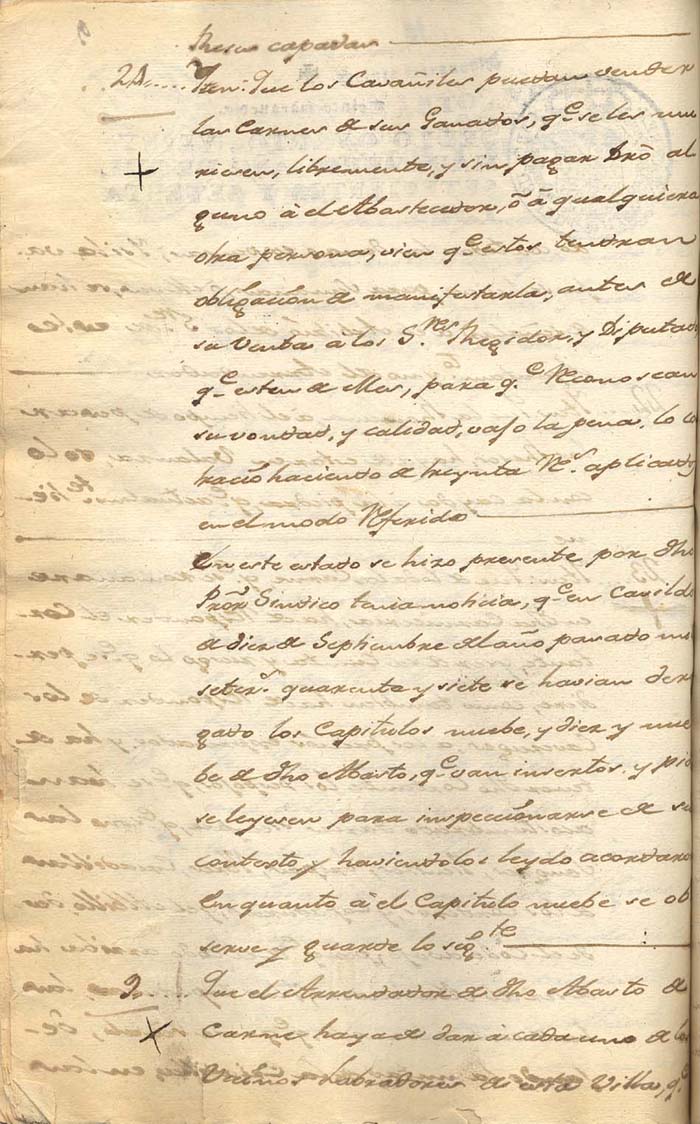 Reses capadas
24.... Yten: Que los Cavañiles puedan vender
las Carnes de sus Ganados, q.e se les mu
riesen, libremente, y sin pagar Dró al
guno â el Abastecedor, ô â qualquiera
otra persona, vien q.e estos tendran
obligácion de manifestarla, antes de
su Venta a los S.res Regidor, y Diputado
q.e esten de Mes, para q.e Reconoscan
su vondad, y calidad, vajo la pena, lo co
traŕio haciendo de treynta R.s aplicados
en el modo Referido
En este estado se hizo presente por dho
Prõr Sindico tenia noticia, q.e en Cavildo
de diez de Septiembre del año pasado m
seter.s quarenta y siete se havian dero
gado los Capitulos nuebe, y diez y nue
be de dho Abasto, q.e van insertos, y pid
se leyesen para inspecciónarse de su
contexto, y haviendolos leydo acordaron
En quanto â el Capitulo nuebe se ob
serve y guarde lo sig.te
9..... Que el Arrendador de dho Abasto de
Carne haya de dar â cada uno de los
Vecinos Labradores de esta Villa, q.e